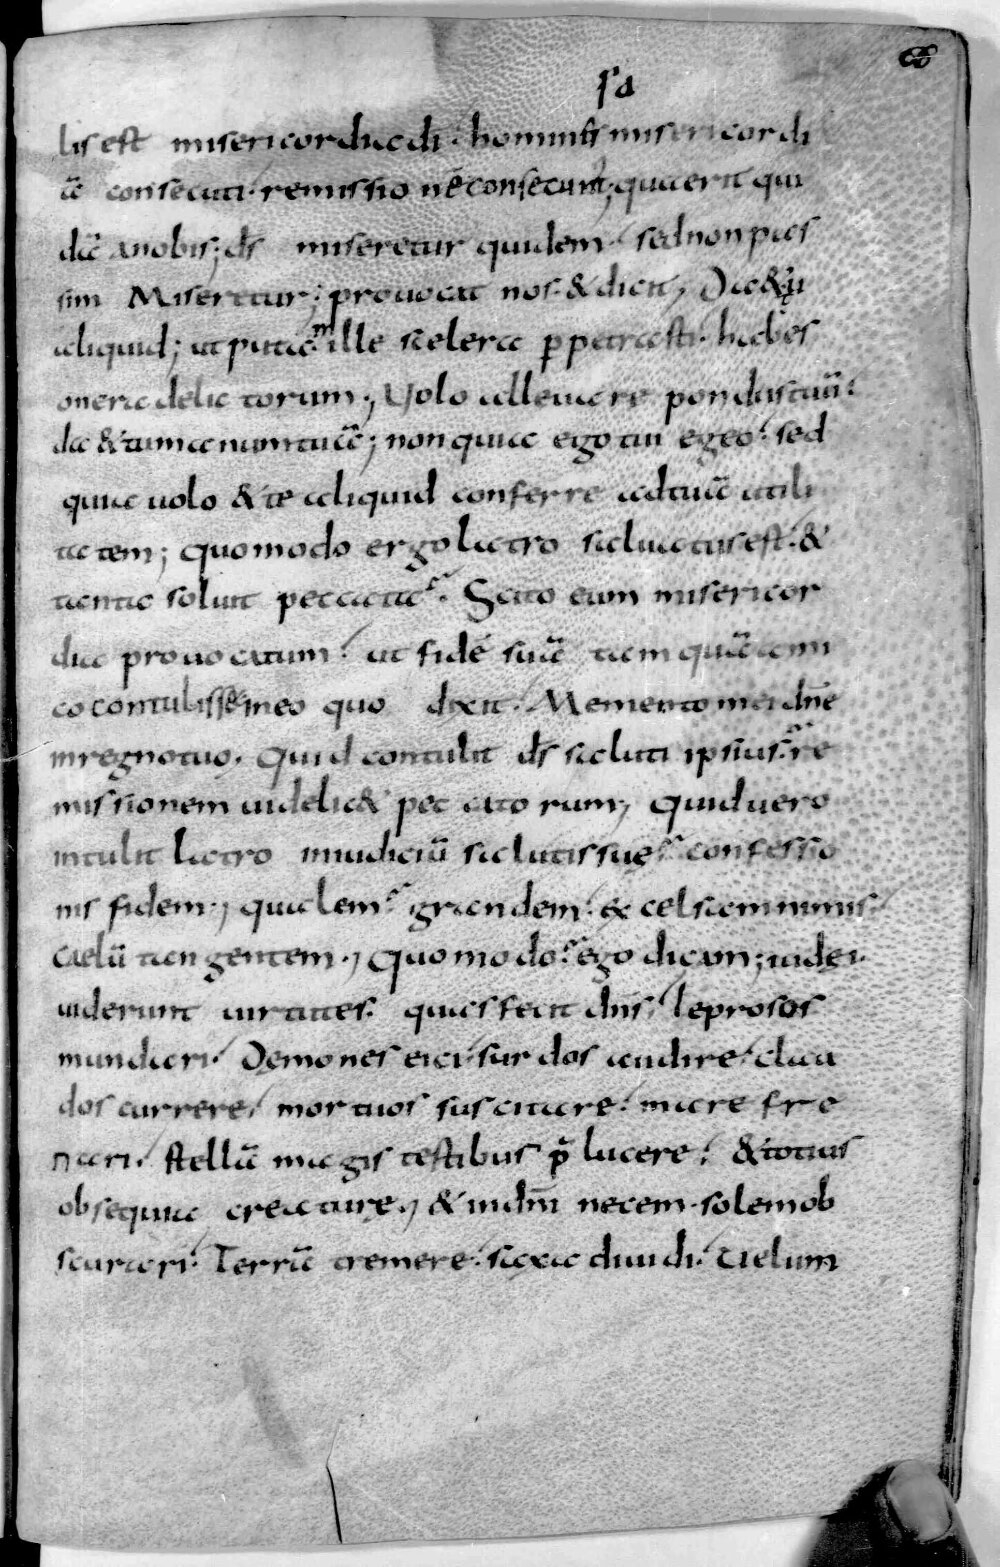 66
sa
lis est misericordia di hominis misericordi
ā consecuti remissionē consecuti; quaerit qui
dā anobis; ds̄ miseretur quidem sed non pas
sim Miseretur; prouocat nos & dicit, Da &
aliquid; utputa mille scelera ꝑpetrasti habes
onera delictorum, Uolo alleuare pondus tuū
da & tu manum tuā; non quia ego tui egeo sed
quia uolo & te aliquid conferre ad tuā utili
tatem; quomodo ergo latro saluatus est &
tanta soluit peccata. Scito eum misericor
dia prouocatum ut fidē suā tam quā ami
co contulisse in eo quo dixit. Memento mei dn̄e
in regno tuo. Quid contulit ds̄ saluti ipsius re
missionem uidelic& peccatorum, Quid uero
intulit latro in iudiciū salutis suę confessio
nis fidem, qualem grandem excelsam nimis
caelū tangentem, Quomodo ego dicam; iudei
uiderunt uirtutes quas fecit dn̄s leprosos
mundari Demones eici surdos audire clau
dos currere mortuos suscitare mare fre
nari stellā magis testibus p̄lucere &totius
obsequia creaturę, & in dn̄i necem solem ob
scurari Terrā tremere saxa diuidi Uelum